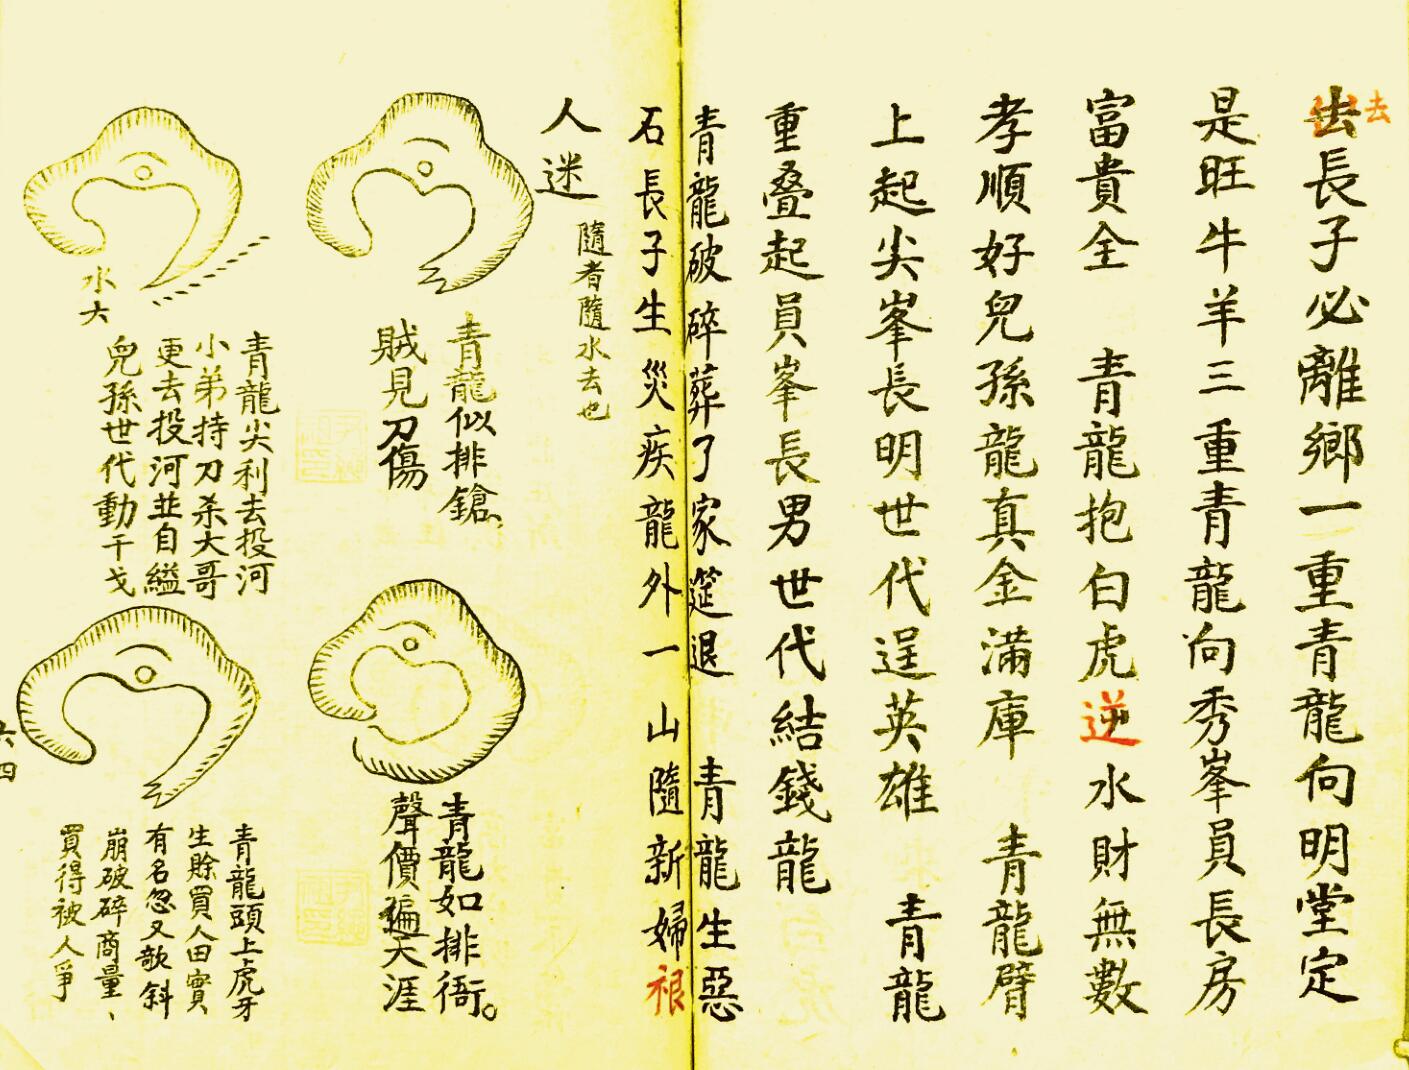 去
去長子必離鄉一重青龍向明堂定
是旺牛羊三重青龍向秀峯員長房
富貴全　青龍抱白虎逆水財無數
孝順好兒孫龍真金滿庫　青龍臂
上起尖峯長明世代逞英雄　青龍
重叠起員峯長男世代結錢龍
青龍破碎葬了家筵退　青龍生惡
石長子生災疾龍外一山隨新婦裉
人迷
隨者隨水去也
青龍似排鎗
賊見刀傷
青龍如排衙。
聲價遍天涯
水大
青龍尖利去投河
小弟持刀杀大哥
更去投河並自縊
兒孫世代動干戈
青龍頭上虎牙
生賒買人田實
有名忽又歌斜
崩破碎商量、
買得被人爭
六四